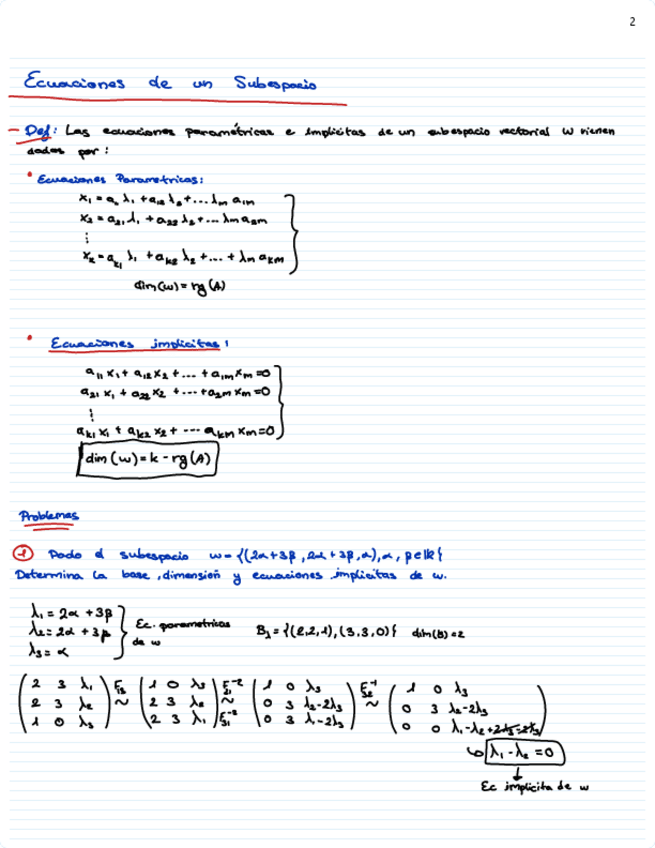 2
Ecuaciones de un Subespacio
- Def: Las ecuaciones paramétricas e implícitas de un subespacio vectorial W vienen
dadas por:
• Ecuaciones Parametricas:
x₁ = a₁ λ₁ + a₁₂ λ₂ + ... λm a₁m
x₂ = a₂₁ λ₁ + a₂₂ λ₂ + ... λm a₂m
⋮
xₖ = aₖ₁ λ₁ + aₖ₂ λ₂ + ... + λm aₖm
dim(w) = rg(A)
• Ecuaciones implicitas:
a₁₁ x₁ + a₁₂ x₂ + ... + a₁m xm = 0
a₂₁ x₁ + a₂₂ x₂ + ... + a₂m xm = 0
⋮
aₖ₁ x₁ + aₖ₂ x₂ + ... aₖm xm = 0
dim (w) = k - rg(A)
Problemas
1 Dado el subespacio w = {(2α+3β, 2α+3β, α), α, β ∈ ℝ}
Determina la base, dimensión y ecuaciones implicitas de w.
λ₁ = 2α + 3β
λ₂ = 2α + 3β
λ₃ = α
Ec. parametricas
de w
B₁ = {(2,2,1), (3,3,0)} dim(B) = 2
( 2 3 λ₁ ) F₁₃ ( 1 0 λ₃ ) F₂₁⁻² ( 1 0 λ₃ ) F₃₂⁻¹ ( 1 0 λ₃ )
( 2 3 λ₂ ) ~ ( 2 3 λ₂ ) ~ ( 0 3 λ₂-2λ₃ ) ~ ( 0 3 λ₂-2λ₃ )
( 1 0 λ₃ ) ( 2 3 λ₁ ) F₃₁⁻² ( 0 3 λ₁-2λ₃ ) ( 0 0 λ₁-λ₂+2λ₃-2λ₃ )
λ₁ - λ₂ = 0
Ec implicita de w